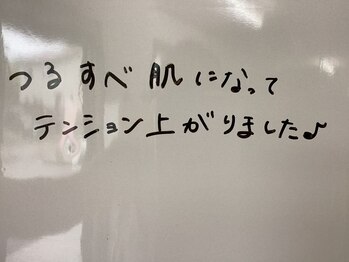 つるすべ肌になって
テンション上がりました♪